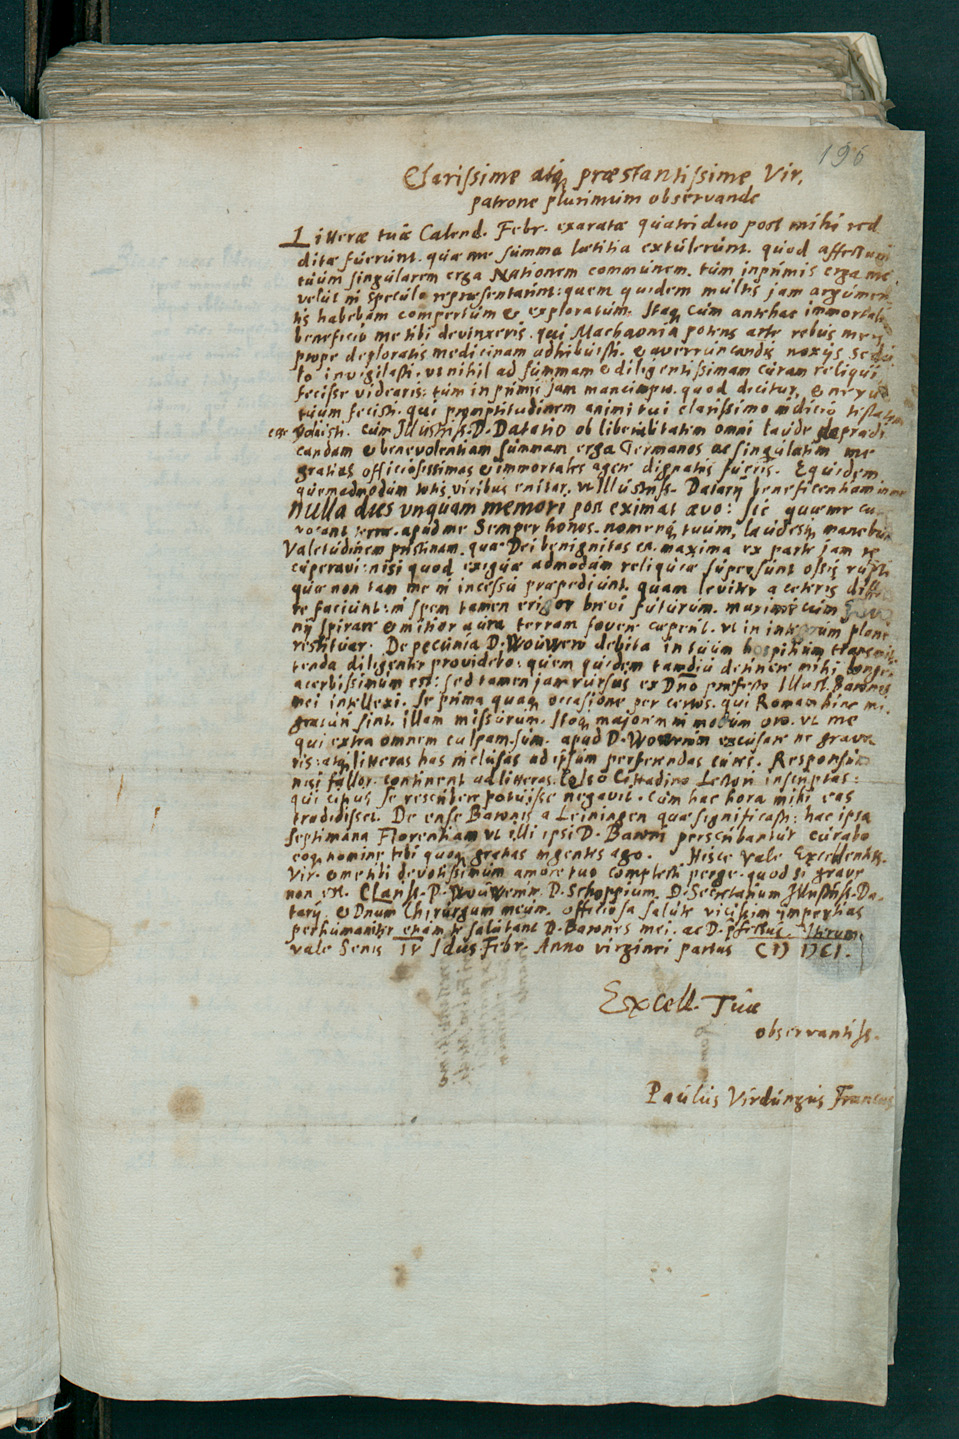 196
Clarissime atq, præstantissime Vir,
patrone plurimum observande
Litteræ tuæ Calend. Febr. exaratæ quatriduo post mihi red
ditæ fuerunt. quæ me summa lætitia extulerunt. quod affectum
tuum singularem erga Nationem communem. tum inprimis erga me,
velut in speculo repræsentarint: quem quidem multis jam argumen
tis habebam compertum & exploratum. Itaq, cum antehac immortali
beneficio me tibi devinxeris. qui Machaonia potens arte rebus meis
prope deploratis medicinam adhibuisti. & averruncandis noxijs sedu
lo invigilasti. vt nihil ad summam & diligentissimam curam reliqui
fecisse videaris: tum inprimis jam mancipio. quod dicitur, & nexu
tuum fecisti. qui promptitudinem animi tui clarissimo indicio testatam
esse voluisti. cum Illustriss. D. Datario ob liberalitatem omni laude prædi
candam & benevolentiam summam erga Germanos ac singulatim me
gratias officiosissimas & immortales agere dignatus fueris. Equidem
quemadmodum totis viribus enitar, vt Illustriss. Datarij beneficentiam
nulla dies vnquam memori post eximat ævo: sic quæ me cu
vocant terræ. apud me Semper honos. nomenq, tuum, laudesq, manebunt
Valetudinem pristinam. quæ Dei benignitas est. maxima ex parte jam re
cuperavi: nisi quod exiguæ admodum reliquiæ supersunt ossis rupti
quæ non tam me in incessu præpediunt. quam leviter a ceteris diffe
re faciunt: in spem tamen erigor brevi futurum. maxime cum
nij spirare & mitior aura terram fovere cœperit. vt in integrum plane
restituar. De pecunia D. Wouwero debita in tuum hospitium transmit
tenda diligenter providebo: quem quidem tamdiu detinere mihi longe
acerbissimum est: sed tamen jam rursus ex Dno præfecto Illust. Baronis
mei intellexi. se prima quaq, occasione per certos. qui Romam hinc mi
graturi sint. illam missurum. Itaq, majorem in modum oro. vt me
qui extra omnem culpam sum. apud D. Wowerum excusare ne grave
ris: atq, litteras has inclusas ad ipsum perferendas cures. Responsum
nisi fallor. continent ad litteras. Celso Cittadino Lectori inscriptas:
qui citius se rescribere potuisse negavit. cum hac hora mihi eas
tradidisset. De ense Baronis a Leiningen quæ significasti: hac ipsa
septimana Florentiam vt illi ipsi D. Baroni perscribantur curabo
eoq, nomine tibi quoq, gratias ingentes ago. Hisce vale Excellentiss.
Vir. & me tibi devotissimum amore tuo complecti perge. quod si grave
non est. Clariss. D. Wouwerum. D. Schoppium. D. Secretarium Illustriss. Da-
tarij. & Dnum Chirurgum meum. officiosa salute vicissim impertias
perhumaniter etiam te salutant D. Baronis mei. ac D. pfectus. Iterum
vale Senis IV Idus Febr. Anno virginei partus CIↃ IↃCI.
Excell. Tuæ
observantiss.
Paulus Virdungus Francus